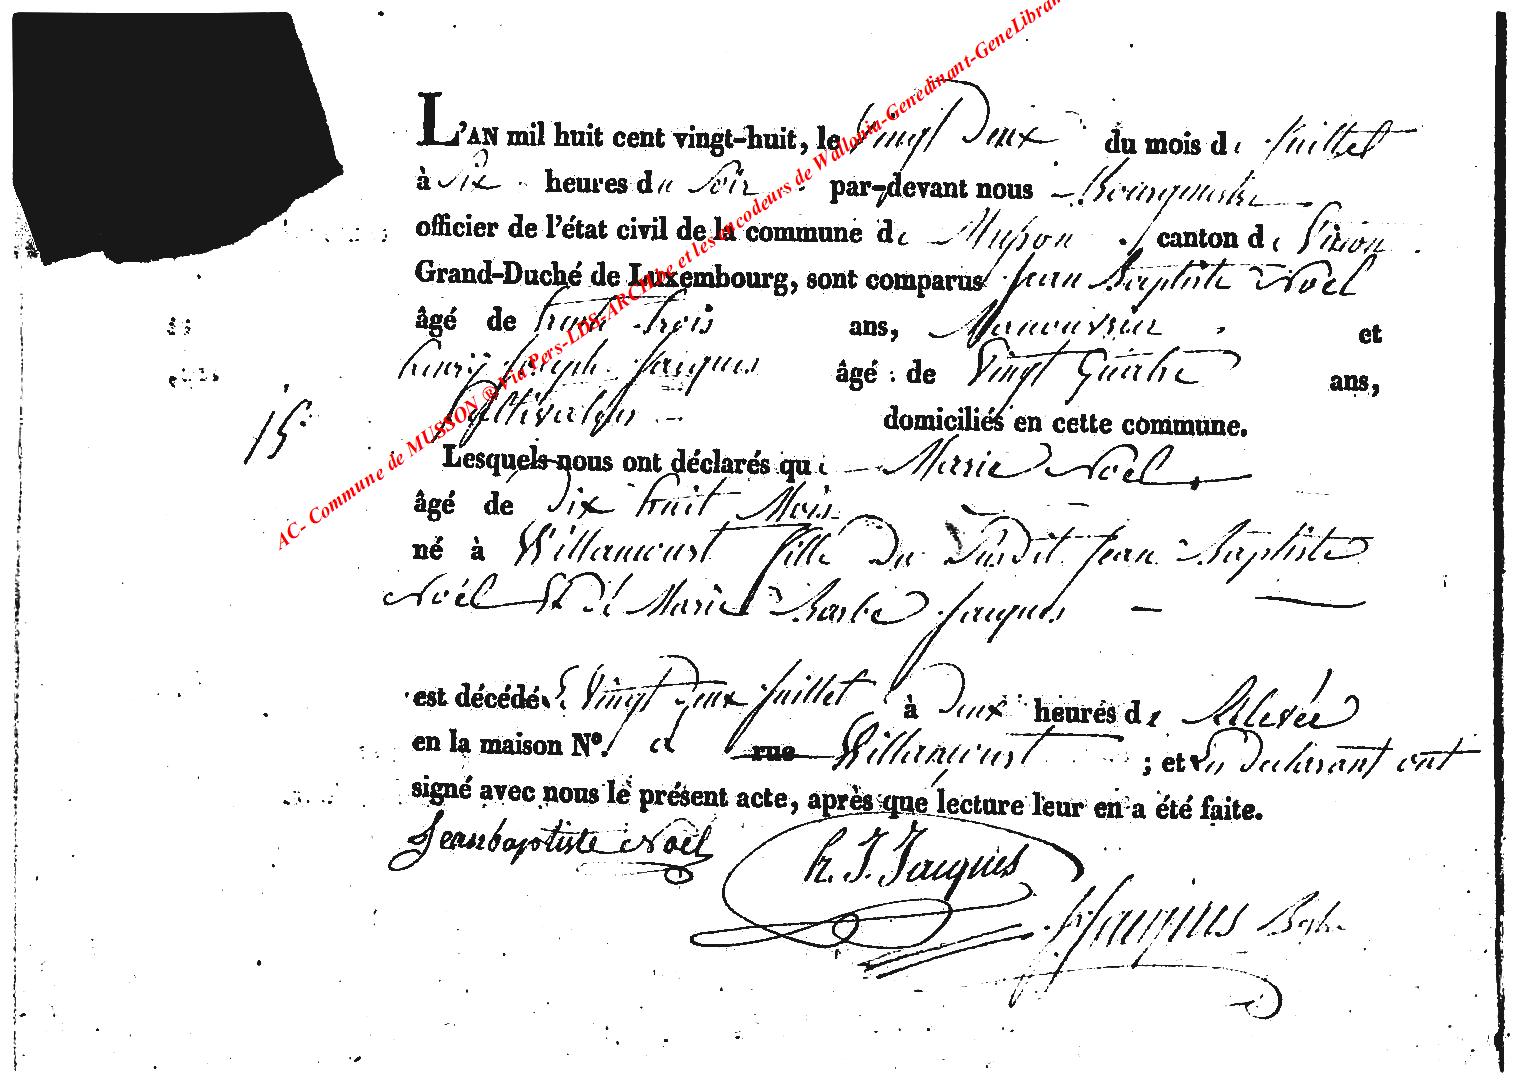 L'AN mil huit cent vingt-huit, le vingt Deux du mois de Juillet
à Six heures du Soir par-devant nous Bourguemestre
officier de l'état civil de la commune de Musson canton de Virton
Grand-Duché de Luxembourg, sont comparus Jean Baptiste Noël
âgé de trente trois ans, Manouvrier et
henry Joseph Jacques âgé de Vingt Quatre ans,
Cultivateur domiciliés en cette commune.
15
Lesquels nous ont déclarés que Marie Noël
âgé de Dix huit Mois
né à Willancourt fille Du Susdit Jean Baptiste
Noël Et De Marie Barbe Jacques
est décédée Vingt Deux Juillet à Deux heures de Relevée
en la maison N°. a rue Willancourt ; et les Declarant ont
signé avec nous le présent acte, après que lecture leur en a été faite.
Jeanbaptiste Noël
h. J. Jacques
Jacques
AC- Commune de MUSSON ® Via Pers-LDS-ARCH.be et les encodeurs de Wallonia-Genedinant-GeneLibran